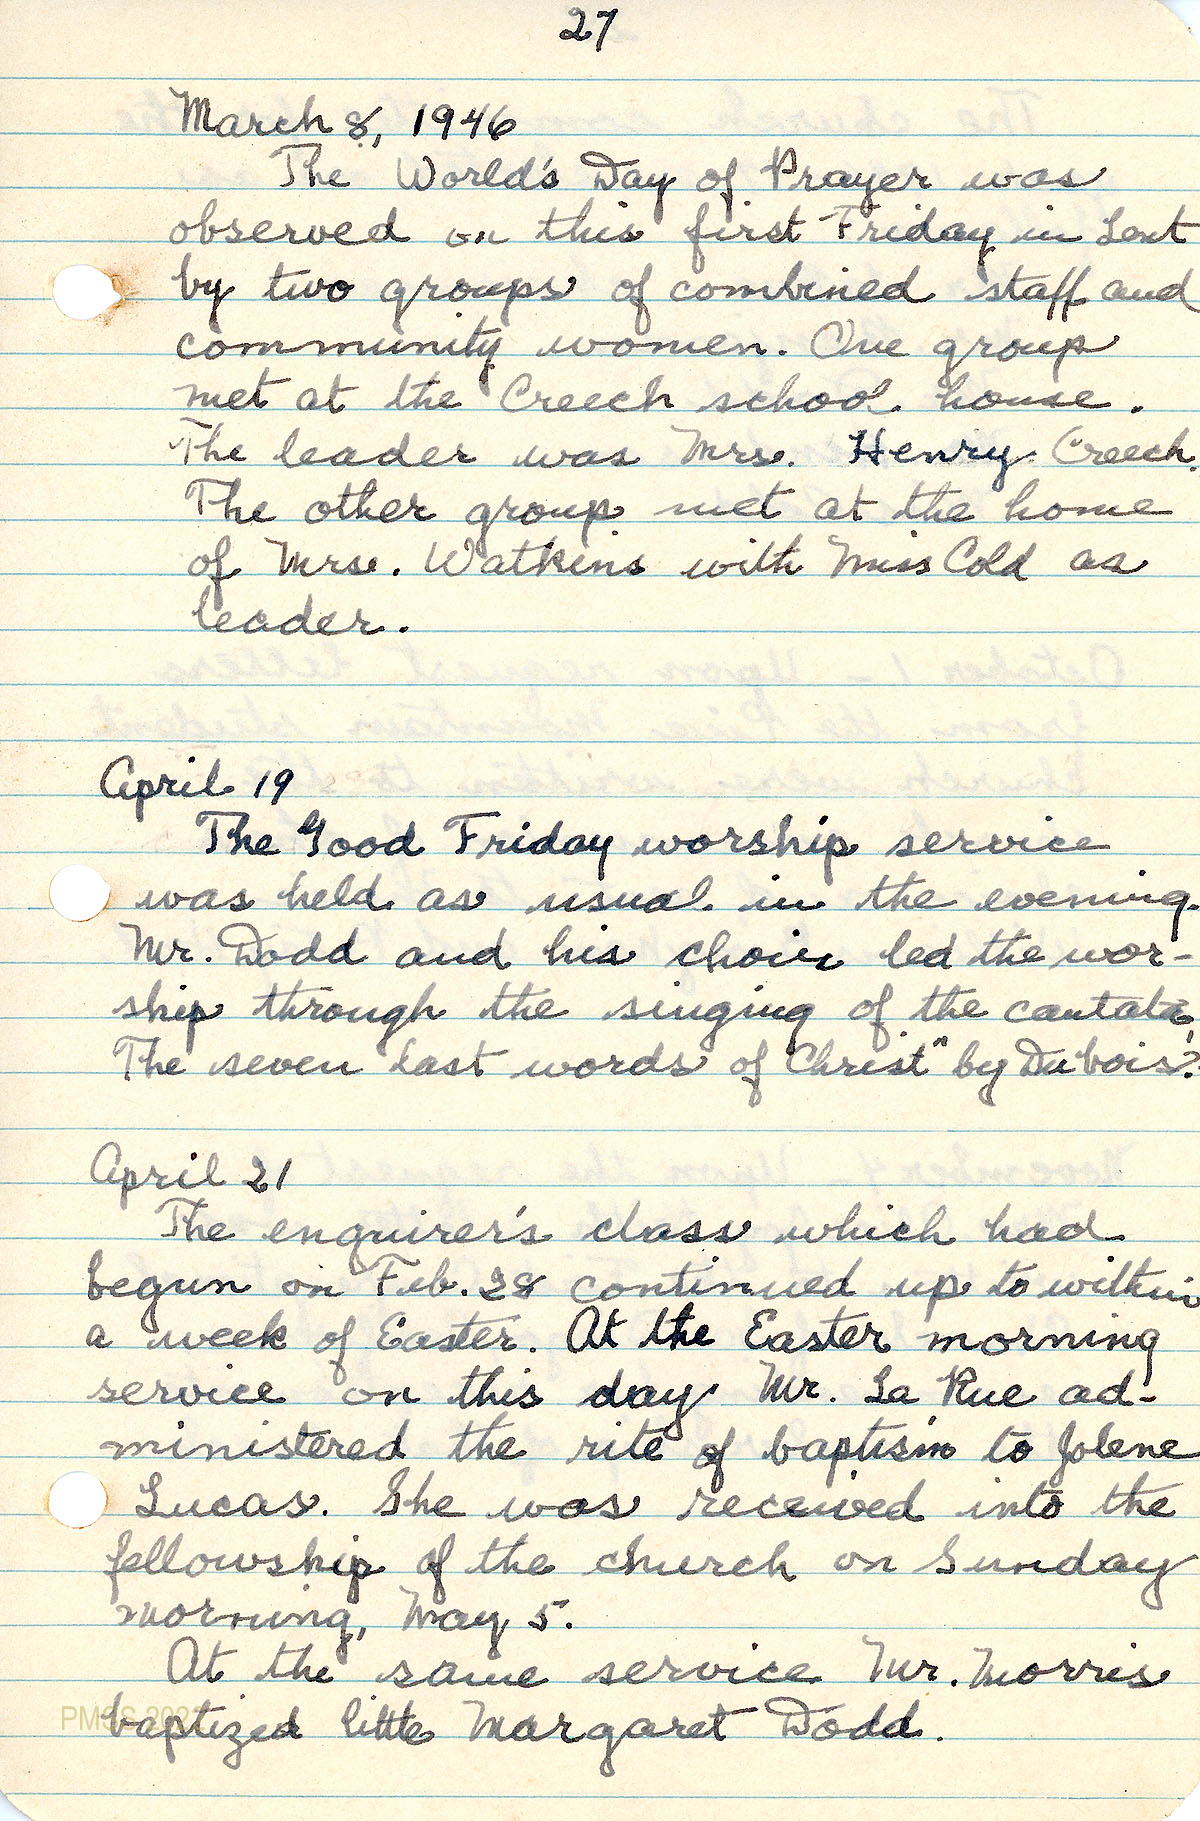 27
March 8, 1946
The World's Day of Prayer was
observed on this first Friday in Lent
by two groups of combined staff and
community women. One group
met at the Creech school house.
The leader was Mrs. Henry Creech.
The other group met at the home
of Mrs. Watkins with Miss Cold as
leader.
April 19
The Good Friday worship service
was held as usual in the evening.
Mr. Dodd and his choir led the wor-
ship through the singing of the cantata,
The seven last words of Christ" by Dubois.
April 21
The enquirer's class which had
begun on Feb. 28 continued up to within
a week of Easter. At the Easter morning
service on this day Mr. La Rue ad-
ministered the rite of baptism to Jolene
Lucas. She was received into the
fellowship of the church on Sunday
morning, May 5.
At the same service Mr. Morris
baptized little Margaret Dodd.